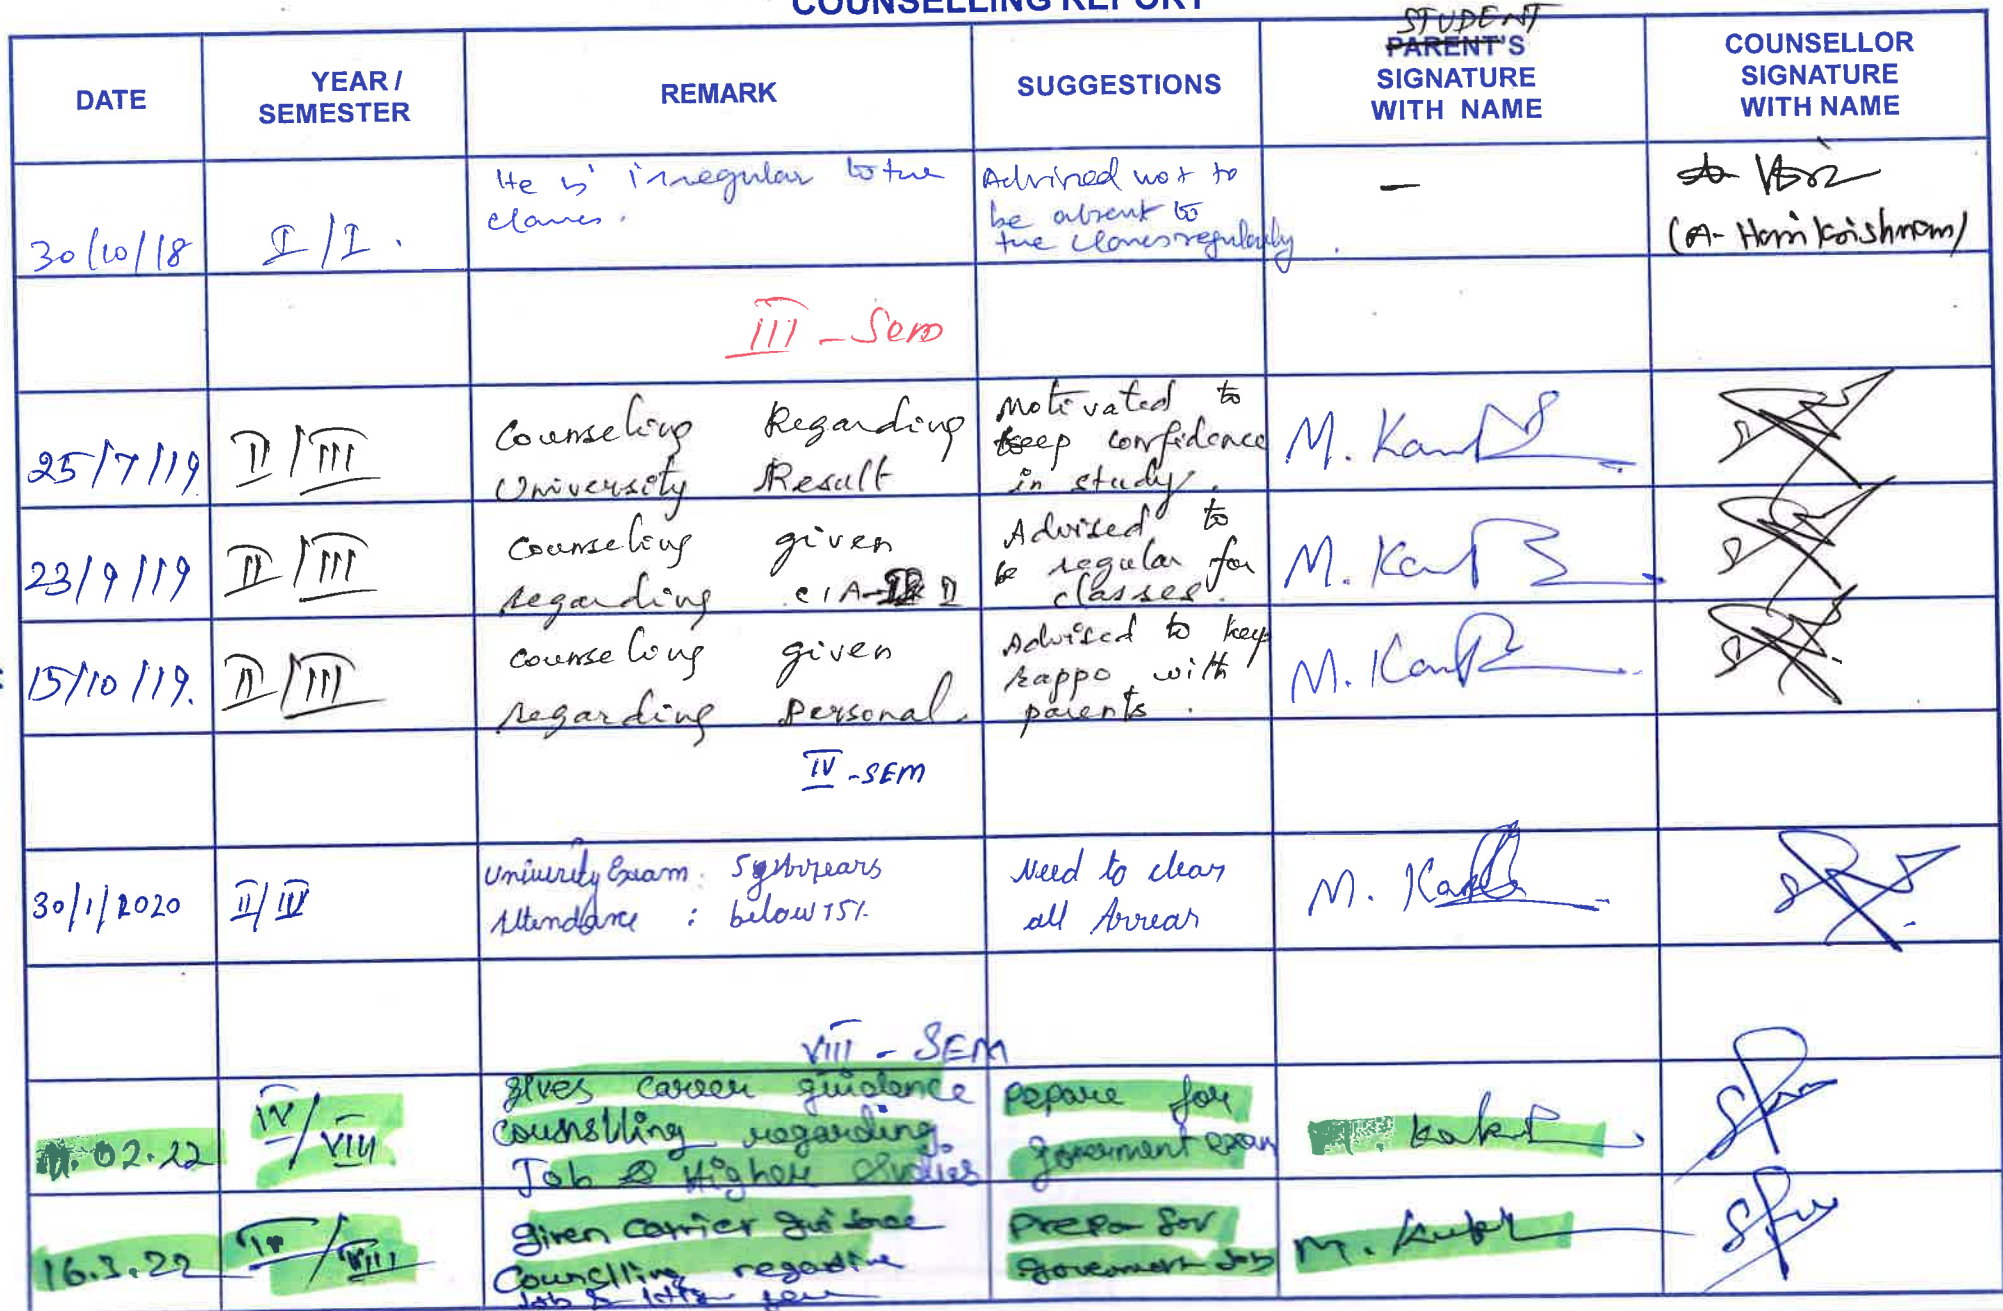 COUNSELLING REPORT
DATE
YEAR /
SEMESTER
REMARK
SUGGESTIONS
STUDENT
PARENT'S
SIGNATURE
WITH NAME
COUNSELLOR
SIGNATURE
WITH NAME
30/10/18
I/I.
He is irregular to the
classes.
Advised not to
be absent to
the classes regularly.
—
(A. Harikrishnan)
III - Sem
25/7/19
II/III
Counseling Regarding
University Result
Motivated to
keep confidence
in study.
M.
23/9/19
II/III
Counseling given
regarding CIA- II
Advised to
be regular for
classes.
M.
15/10/19.
II/III
Counseling given
regarding personal.
Advised to keep
rappo with
parents.
M.
IV - SEM
30/1/2020
II/IV
University Exam: 5
Attendance : below 75%
Need to clear
all Arrear
M.
VIII - SEM
02.22
IV/VIII
gives career guidance
counslling regarding
Job & Higher Studies
Pepare for
Goverment exam
16.3.22
IV/VIII
given carrier guidance
Counslling regarding
Job &
Prepa for
goverment Job
M.